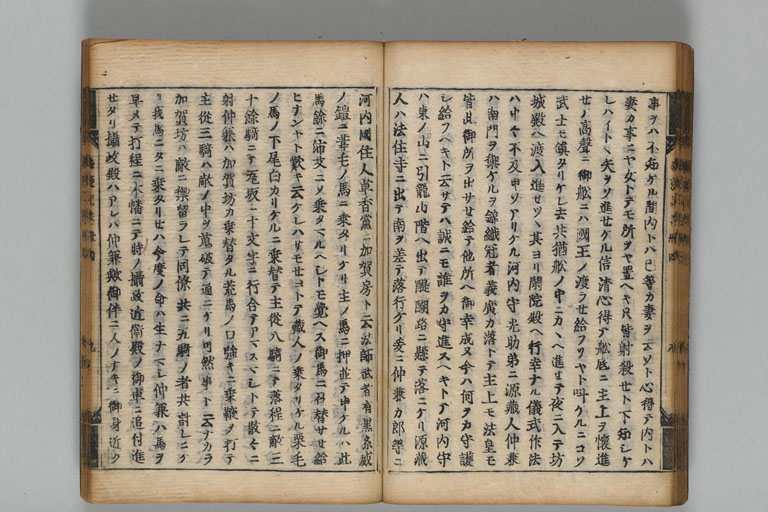 事ヲハ不知ケル間内トハ己等カ妻ヲ云ソト心得テ内トハ
妻カ事ニヤ女トテモ所ヲヤ置ヘキ只皆射殺セト下知シケ
レハイトヽ矢ヲソ進セケル信清心得テ舩底ニ主上ヲ懐進
セノ高聲ニ御舩ニハ國王ノ渡ラセ給フソヤト叫ケルニコソ
武士モ鎮タリケレ去共猶舩ノ中ニカヘ進セテ夜ニ入テ坊
城殿ヘ渡入進セツヽ其ヨリ閑院殿ヘ行幸ナル儀式作法
ハ中々不及申ソアリケル河内守光助弟ニ源蔵人仲兼
ハ南門ヲ禦ケルヲ錦織冠者義廣カ落トテ主上モ法皇モ
皆此御所ヲ出サセ給テ他所ヘ御幸成ヌ今ハ何ヲカ守護
シ給フヘキト云サテハ誠ニモ誰ヲカ守進スヘキトテ河内守
ハ東ノ山ニ引籠山階ヘ出テ醍醐路ニ懸テ落ニケリ源蔵
人ハ法住寺ニ出テ南ヲ差テ落行ケリ爰ニ仲兼カ郎等ニ
河内國住人草香黨ニ加賀房ト云法師武者有黒糸威
ノ鎧ニ葦毛ノ馬ニ乗タリケリ主ノ馬ニ押並テ申ケルハ此
馬餘ニ
ヒナンヤト歎キ云ケレハサモセヨトテ蔵人ノ乗タリケル栗毛
ノ馬ノ下尾白カリケルニ乗替テ主從八騎ニテ落程ニ敵三
十餘騎ニテ瓦坂ニ十文字ニ行合テアマスマシトテ散々ニ
射仲兼ハ加賀坊カ乗替タル荒馬ノ口強キニ乗鞭ヲ打テ
主從三騎ハ敵ノ中ヲ蒐破テ通ニケリ可然事ト云ナカラ
加賀坊ハ敵ニ禦留ラレテ同僚共ニ九騎ノ者共討レニケ
リ我馬ニタニ乗タリセハ今度ノ命ハ生ナマシ仲兼ハ馬ヲ
早メテ打程ニ木幡ニテ時ノ攝政近衛殿ノ御車ニ追付進
セタリ攝政殿ハアレハ仲兼歟御伴ニ人ノナキニ御身近ク